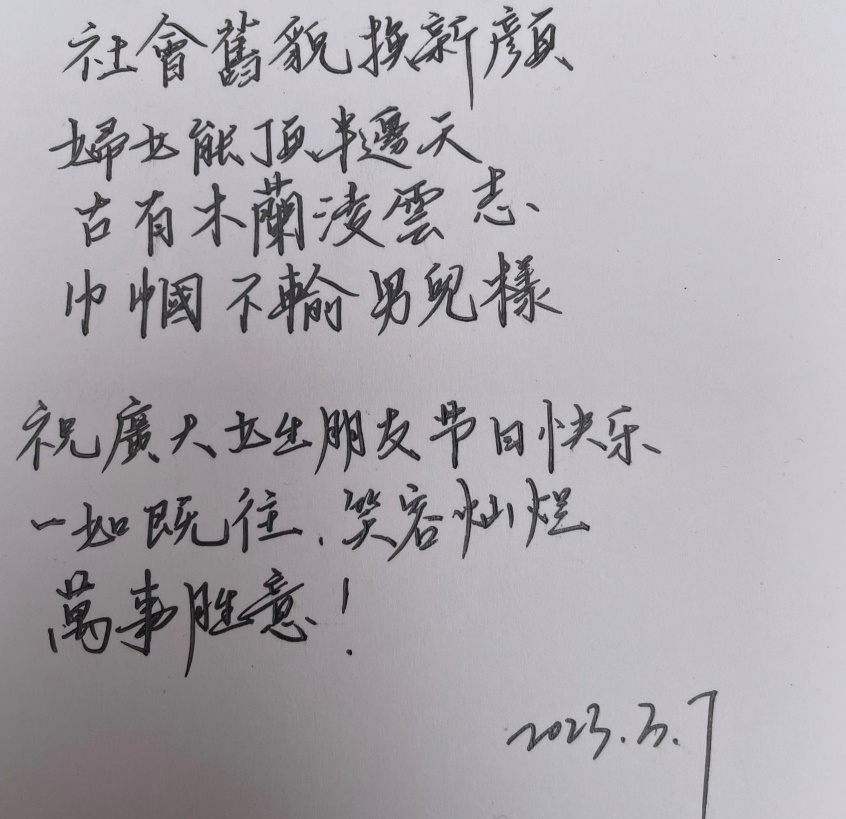 社會舊貌換新顏
婦女能頂半邊天
古有木蘭淩雲志
巾幗不輸男兒樣
祝廣大女生朋友节日快乐
一如既往、笑容灿烂
萬事胜意！
2023.3.7